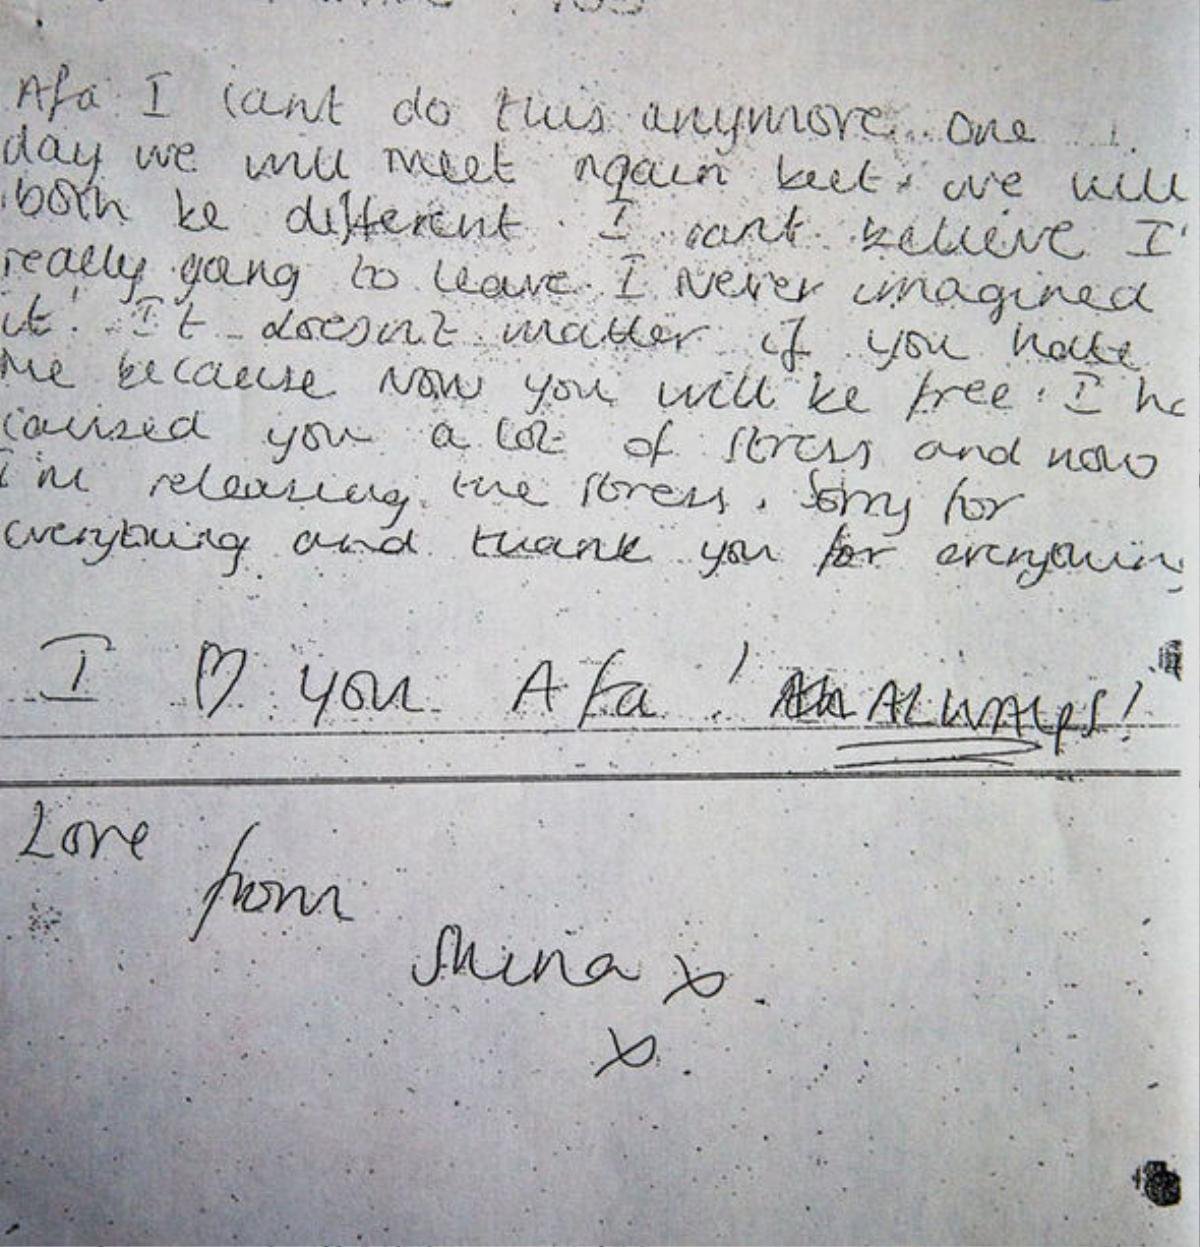 Afa I cant do this anymore. One
day we will meet again but we will
both be different. I cant believe I'
really going to leave I never imagined
it! It doesn't matter if you hate
me because now you will be free. I ha
caused you a lot of stress and now
I'm releasing the stress. Sorry for
everything and thank you for everything
I ♡ you Afa! ALWAYS!
Love
from
x.
x.